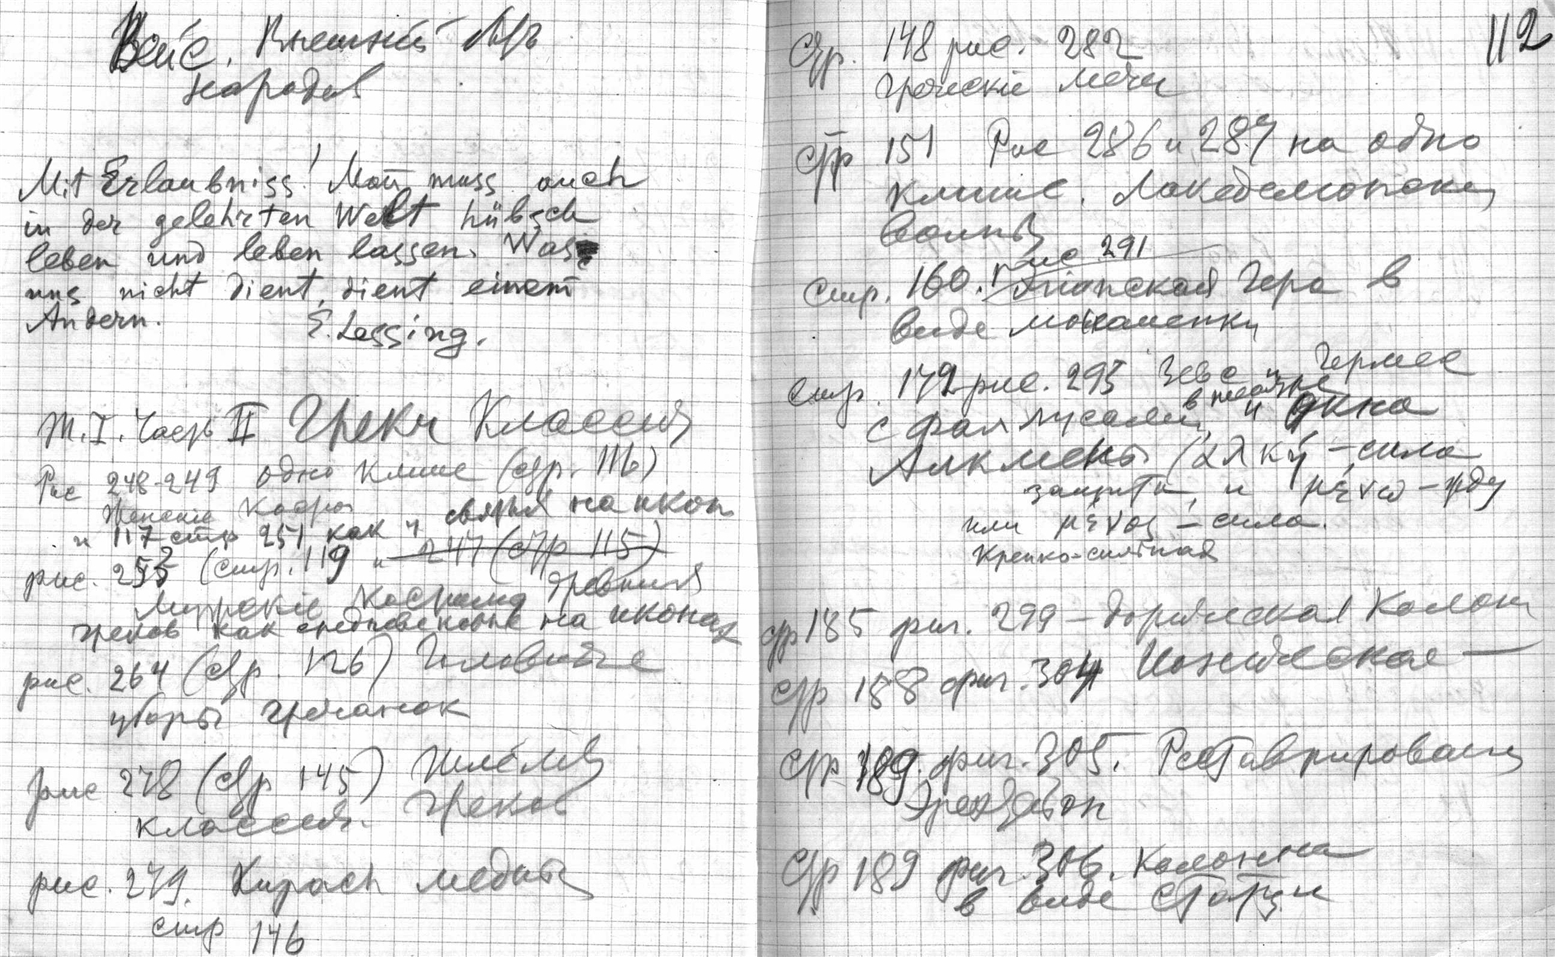 Вейс. Внешній быт
народов
Mit Erlaubniss! Man muss auch
in der gelehrten Welt hübsch
leben und leben lassen. Was
uns nicht dient, dient einem
Andern.
E. Lessing.
Т. I. Часть II Греки Классич
Рис 248-249 одно клише (стр. 116)
Женскіе
и 117 стр 251 как и святыя на икон
рис. 253 (стр. 119 и 247 (стр 115)
древних
греков как на иконах
рис. 264 (стр. 126) Головные
уборы гречанок
рис 278 (стр 145) Шлемы
классич. греков
рис. 279. Хирасы медные
стр 146
112
стр. 148 рис. 282
греческіе мечи
стр 151 Рис 286 и 287 на одно
клише. Лакедемонскіи
воины
рис 291
стр. 160. Гера в
виде
стр. 179 рис. 295 Зевс и Гермес
в театре
с фаллусами, и окно
Алкмены (ἀλκή – сила
защиты, и μένω – жду
или μένος – сила.
Крепко-сильная
стр 185 фиг. 299 – дорийская Колон
стр 188 фиг. 304 Іонийская —
стр 189. фиг. 305. Реставрирован
Эрехтейон
стр 189 фиг. 306. Колонна
в виде статуи